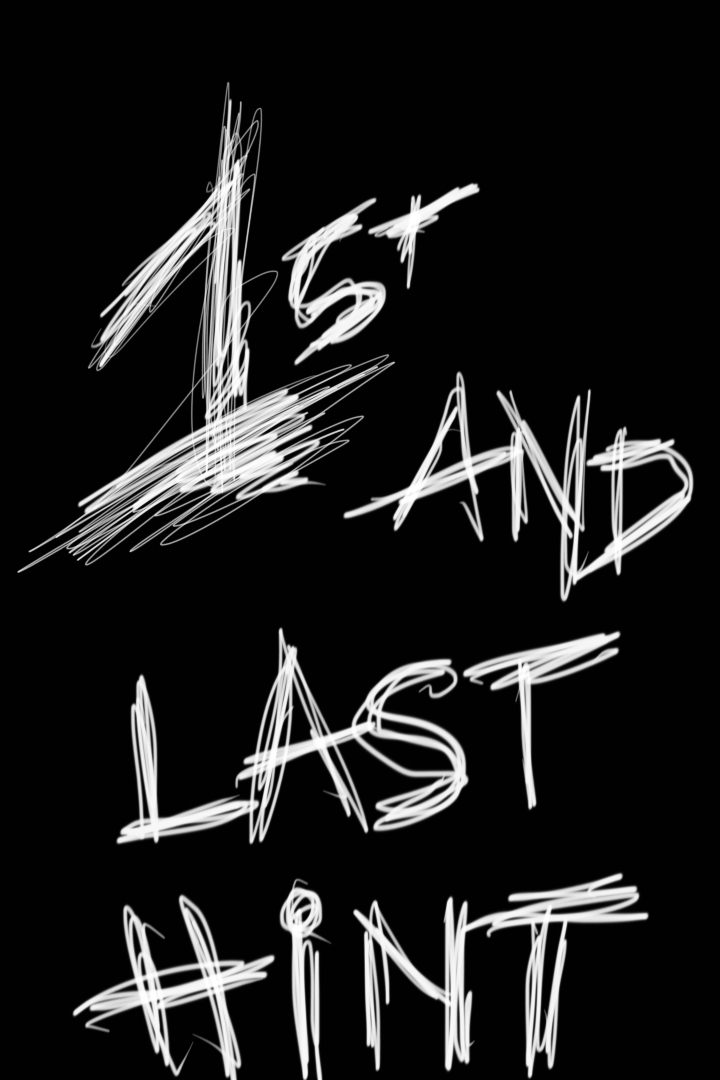 1st
AND
LAST
HiNT